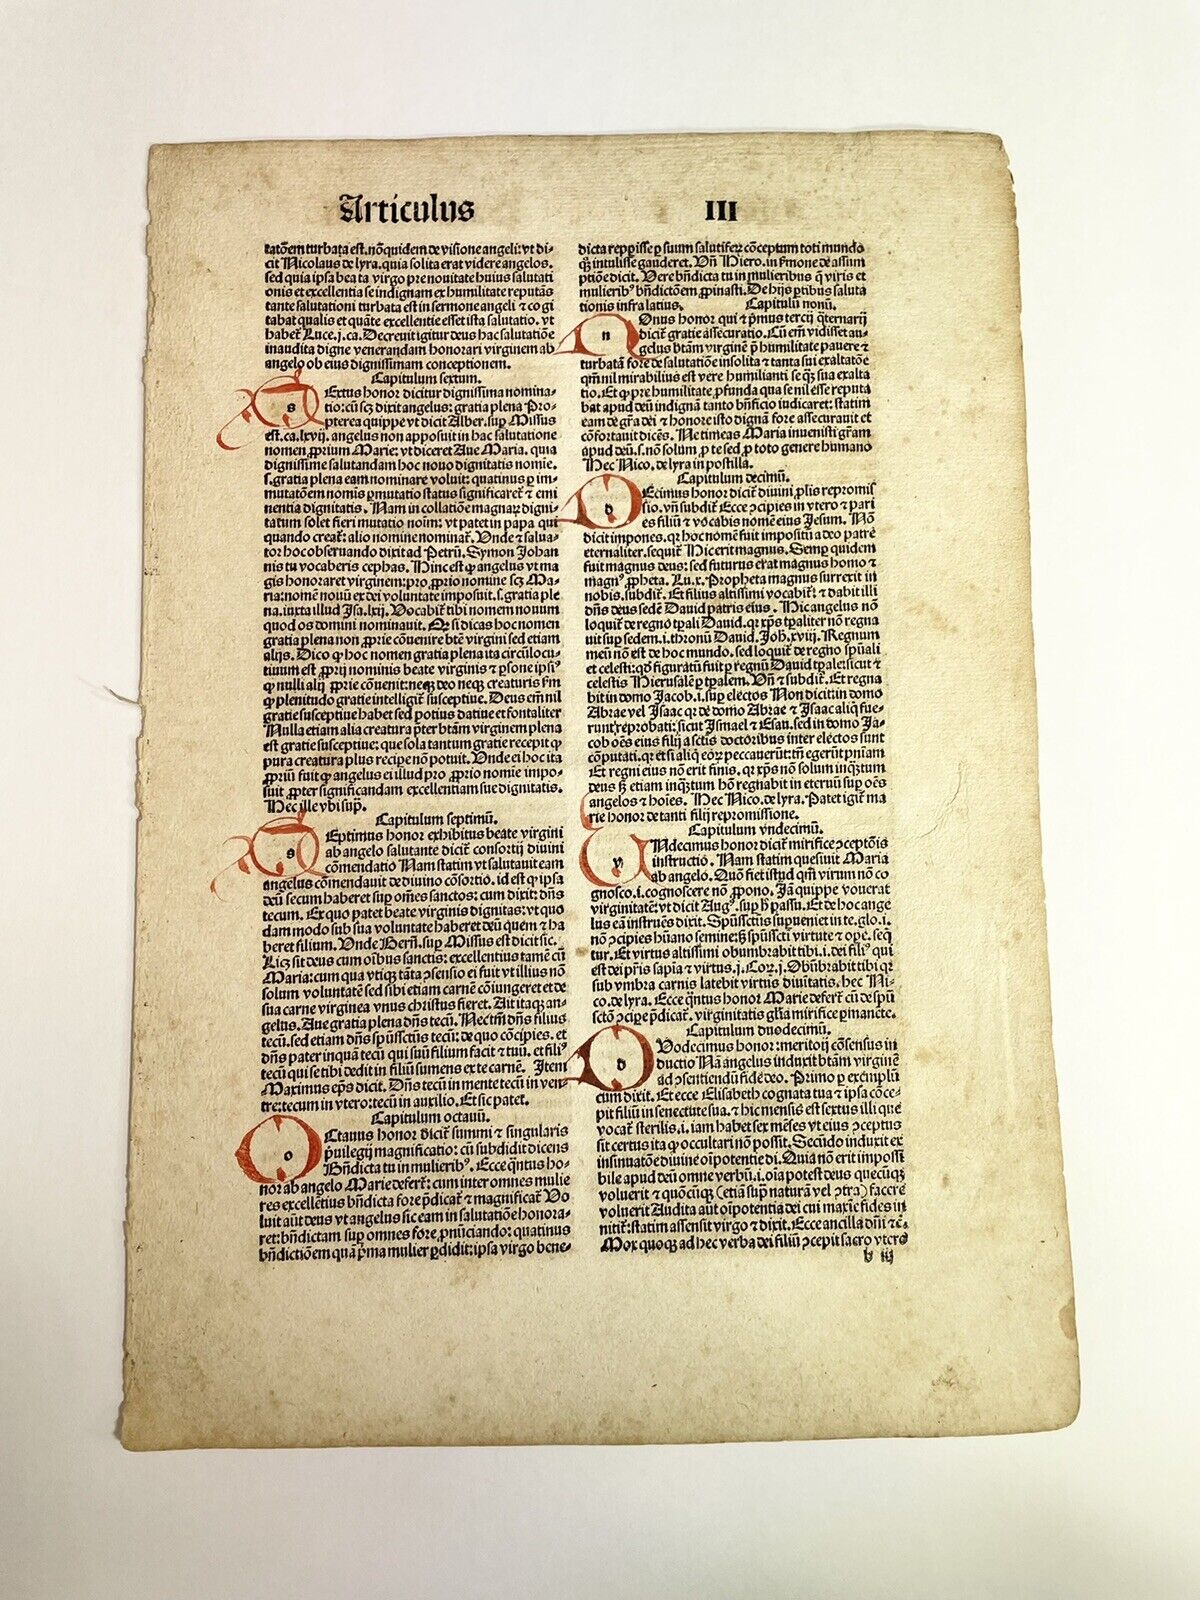 Articulus III
tatōem turbata est. nō quidem de visione angeli: vt di-
cit Nicolaus de lyra. quia solita erat videre angelos.
sed quia ipsa beata virgo pre nouitate huius salutati
onis et excellentia se indignam ex humilitate reputās
tante salutationi turbata est in sermone angeli ⁊ cogi
tabat qualis et quāte excellentie esset ista salutatio. vt
habet̄ Luce.j.ca. Decreuit igitur deus hac salutatiōe
inaudita digne venerandam honorari virginem ab
angelo ob eius dignissimam conceptionem.
Capitulum sextum.
sExtus honor dicitur dignissima nomina-
tio: cū scꝫ dixit angelus: gratia plena Pro-
pterea quippe vt dicit Alber. sup̄ Missus
est.ca.lxvij. angelus non apposuit in hac salutatione
nomen ꝓprium Marie: vt diceret Aue Maria. quia
dignissime salutandam hoc nouo dignitatis nomīe.
s. gratia plena eam nominare voluit: quatinus ꝑ im-
mutatōem nomīs ꝑmutatio status significaret̄ ⁊ emi
nentia dignitatis. Nam in collatiōe magnaꝝ digni-
tatum solet fieri mutatio noīm: vt patet in papa qui
quando creat̄: alio nomine nominat̄. Vnde ⁊ salua-
tor hoc obseruando dixit ad Petrū. Symon Johan
nis tu vocaberis cephas. Hinc est ꝙ angelus vt ma
gis honoraret virginem: pro ꝓprio nomine scꝫ Ma-
ria: nomē nouū ex dei voluntate imposuit.s. gratia ple
na. iuxta illud Isa.lxij. Vocabit̄ tibi nomem nouum
quod os domini nominauit. Qꝫ si dicas hoc nomen
gratia plena non ꝓprie cōuenire btē virgini sed etiam
alijs. Dico ꝙ hoc nomen gratia plena ita circūlocu-
tiuum est ꝓprij nominis beate virginis ⁊ ꝑsone ipsiꝰ
ꝙ nulli alij ꝓprie cōuenit: neqꝫ deo neqꝫ creaturis sm̄
ꝙ plenitudo gratie intelligit̄ susceptiue. Deus em̄ nil
gratie susceptiue habet sed potius datiue et fontaliter
Nulla etiam alia creatura p̄ter btām virginem plena
est gratie susceptiue: que sola tantum gratie recepit ꝙ
pura creatura plus recipe nō potuit. Vnde ei hoc ita
ꝓpriū fuit ꝙ angelus ei illud pro ꝓprio nomīe impo-
suit ꝓpter significandam excellentiam sue dignitatis.
Hec ille vbi sup̄.
Capitulum septimū.
sEptimus honor exhibitus beate virgini
ab angelo salutante dicit̄ consortij diuini
cōmendatio Nam statim vt salutauit eam
angelus cōmendauit de diuino cōsortio. id est ꝙ ipsa
deū secum haberet sup̄ om̄es sanctos: cum dixit: dn̄s
tecum. Ex quo patet beate virginis dignitas: vt quo
dam modo sub sua voluntate haberet deū quem ⁊ ha
beret filium. Vnde Bern̄. sup̄ Missus est dicit sic.
Licꝫ sit deus cum oībus sanctis: excellentius tamē cū
Maria: cum qua vtiqꝫ tāta ↄsensio ei fuit vt illius nō
solum voluntatē sed sibi etiam carnē cōiungeret et de
sua carne virginea vnus christus fieret. Ait itaqꝫ an-
gelus. Aue gratia plena dn̄s tecū. Nec tm̄ dn̄s filius
tecū. sed etiam dn̄s spūssctūs tecū: de quo cōcipies. et
dn̄s pater inquā tecū qui suū filium facit ⁊ tuū. et filiꝰ
tecū qui se tibi dedit in filiū sumens ex te carnē. Item
Maximus ep̄s dicit. Dn̄s tecū in mente tecū in ven-
tre: tecum in vtero: tecū in auxilio. Et sic patet.
Capitulum octauū.
oCtauus honor dicit̄ summi ⁊ singularis
p̄uilegij magnificatio: cū subdidit dicens
Bn̄dicta tu in mulieribꝰ. Ecce q̄ntus ho-
nor ab angelo Marie defert̄: cum inter omnes mulie
res excellētius bn̄dicta fore p̄dicat̄ ⁊ magnificat̄ Vo
luit aūt deus vt angelus sic eam in salutatiōe honora-
ret: bn̄dictam sup̄ omnes fore ꝓnūciando: quatinus
bn̄dictiōem quā p̄ma mulier ꝑdidit: ipsa virgo bene-
dicta rep̄ꝑisse ꝑ suum salutifeꝝ cōceptum toti mundo
qꝫ intulisse gauderet. Vn̄ Hiero. in s̄mone de assum
ptiōe dicit. Vere bn̄dicta tu in mulieribus q̄ viris et
mulieribꝰ bn̄dictōem ꝓpinasti. De hijs ꝑtibus saluta
tionis infra latius.
Capitulū nonū.
nOnus honor qui ⁊ p̄mus tercij q̄ternarij
dicit̄ gratie assecuratio. Cū em̄ vidisset an-
gelus btām virginē p̄ humilitate pauere ⁊
turbatā fore de salutatiōe insolita ⁊ tanta sui exaltatōe
qm̄ nil mirabilius est vere humilianti se qꝫ sua exalta
tio. Et ꝙ pre humilitate ꝓfunda qua se nil esse reputa
bat apud deū indignā tanto bn̄ficio iudicaret: statim
eam de gr̄a dei ⁊ honore isto dignā fore assecurauit et
cōfortauit dicēs. Ne timeas Maria inuenisti gr̄am
apud deū.s. nō solum ꝓ te sed ꝓ toto genere humano
Hec Nico. de lyra in postilla.
Capitulum decimū.
dEcimus honor dicit̄ diuini ꝓlis repromis
sio. vn̄ subdit̄ Ecce ↄcipies in vtero ⁊ pari
es filiū ⁊ vocabis nomē eius Jesum. Nō
dicit impones. qꝛ hoc nomē fuit impositū a deo patre
eternaliter. sequit̄ Hic erit magnus. Semꝑ quidem
fuit magnus deus: sed futurus erat magnus homo ⁊
magnꝰ ꝓpheta. Lu.x. Propheta magnus surrexit in
nobis. subdit̄. Et filius altissimi vocabit̄: ⁊ dabit illi
dn̄s deus sedē Dauid patris eius. Hic angelus nō
loquit̄ de regno tp̄ali Dauid. qꝛ xp̄s tp̄aliter nō regna
uit sup̄ sedem.i. thronū Dauid. Joh̄.xviij. Regnum
meū nō est de hoc mundo. sed loquit̄ de regno spūali
et celesti: qd̄ figuratū fuit ꝑ regnū Dauid tp̄ale: sicut ⁊
celestis Hierusalē ꝑ tp̄alem. Vn̄ ⁊ subdit̄. Et regna
bit in domo Jacob.i. sup̄ electos Non dicit in domo
Abrae vel Isaac qꝛ de domo Abrae ⁊ Isaac aliq̄ fue-
runt reprobati: sicut Ismael ⁊ Esau. sed in domo Ja-
cob oēs eius filij a sctīs doctoribus inter electos sunt
cōputati. qꝛ etsi aliq̄ eoꝝ peccauerūt: tn̄ egerūt pn̄iam
Et regni eius nō erit finis. qꝛ xp̄s nō solum inqꝫtum
deus sꝫ etiam inqꝫtum hō regnabit in eternū sup̄ oēs
angelos ⁊ hoīes. Hec Nico. de lyra. Patet igit̄ ma
rie honor de tanti filij repromissione.
Capitulum vndecimū.
vNdecimus honor dicit̄ mirifice ↄceptōis
instructio. Nam statim quesiuit Maria
ab angelo. Quō fiet istud qm̄ virum nō co
gnosco.i. cognoscere nō ꝓpono. Jā quippe vouerat
virginitatē: vt dicit Augꝰ. sup̄ h̄ passu. Et de hoc ange
lus eā instruēs dixit. Spūssctūs supueniet in te. glo.i.
nō ↄcipies hūano semine: sꝫ spūsscti virtute ⁊ opē. seq̄
tur. Et virtus altissimi obumbrabit tibi.i. dei filiꝰ qui
est dei pr̄is sapīa ⁊ virtus.j. Coꝝ.j. Obūbrabit tibi qꝛ
sub vmbra carnis latebit virtus diuīitatis. hec Ni-
co. de lyra. Ecce q̄ntus honor Marie defert̄ cū de spū
sctō ↄcipe p̄dicat̄. virginitatis gl̄ia mirifice ꝑmanēte.
Capitulum duodecimū.
dVodecimus honor: meritorij cōsensus in
ductio Nā angelus induxit btām virginē
ad ↄsentiendū fide deo. Primo ꝑ exemplū
cum dixit. Et ecce Elisabeth cognata tua ⁊ ipsa cōce-
pit filiū in senectute sua. ⁊ hic mensis est sextus illi que
vocat̄ sterilis.i. iam habet sex mēses vt eius ↄceptus
sit certus ita ꝙ occultari nō possit. Secūdo induxit ex
insinuatōe diuine oīpotentie di. Quia non erit impossi
bile apud deū omne verbū.i. oīa potest deus quecūqꝫ
voluerit ⁊ quōcūqꝫ (etiā sup̄ naturā vel ↄtra) facere
voluerit Audita aūt oīpotentia dei cui maxīe fides in
nitit̄: statim assensit virgo ⁊ dixit. Ecce ancilla dn̄i ⁊c̄.
Mox quoqꝫ ad hec verba dei filiū ↄcepit sacro vtero
b iij